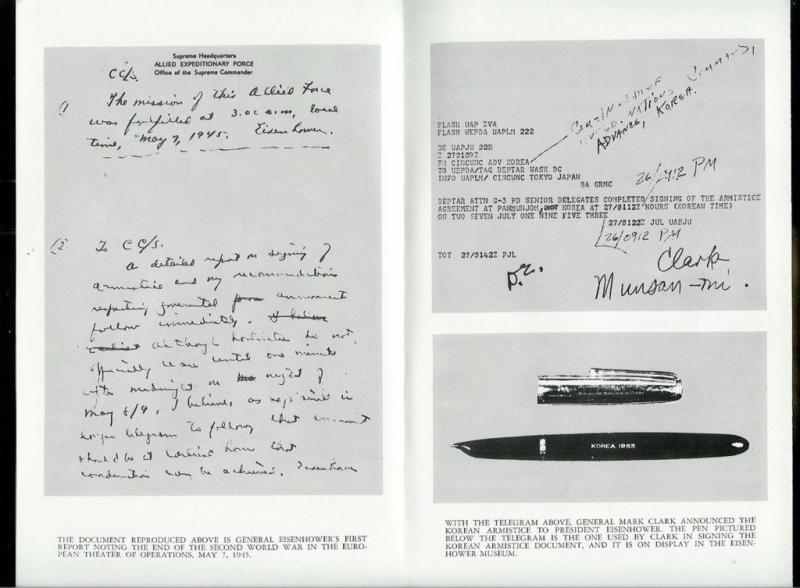 Supreme Headquarters
ALLIED EXPEDITIONARY FORCE
Office of the Supreme Commander
CC/S.
(1
The mission of this Allied Force
was fulfilled at 3.00 a.m., local
time, May 7, 1945. Eisenhower.
(2
To CC/S.
A detailed report on signing of
armistice and my recommendations
respecting governmental announcement
follow immediately.
although hostilities do not
officially cease until one minute
after midnight on night of
May 8/9, I believe, as
longer telegram to follow, that
should be at earliest hour that
coordination can be achieved. Eisenhower
THE DOCUMENT REPRODUCED ABOVE IS GENERAL EISENHOWER'S FIRST
REPORT NOTING THE END OF THE SECOND WORLD WAR IN THE EURO-
PEAN THEATER OF OPERATIONS, MAY 7, 1945.
COMMAND
ADVANCE, KOREA.
FLASH UAP ZVA
FLASH UEPDA UAPLM 222
DE UAPJU 92B
Z 270109Z
FM CINCUNC ADV KOREA
TO UEPDA/TAG DEPTAR WASH DC
INFO UAPLM/ CINCUNC TOKYO JAPAN
26/0912 PM
DA GRNC
DEPTAR ATTN G-3 PD SENIOR DELEGATES COMPLETED SIGNING OF THE ARMISTICE
AGREEMENT AT PANMUNJOM, KOREA AT 27/0112Z HOURS (KOREAN TIME)
ON TWO SEVEN JULY ONE NINE FIVE THREE
27/0122Z JUL UABJU
26/0912 PM
TOT 27/0142Z PJL
Clark
Munsan-ni.
KOREA 1953
WITH THE TELEGRAM ABOVE, GENERAL MARK CLARK ANNOUNCED THE
KOREAN ARMISTICE TO PRESIDENT EISENHOWER. THE PEN PICTURED
BELOW THE TELEGRAM IS THE ONE USED BY CLARK IN SIGNING THE
KOREAN ARMISTICE DOCUMENT, AND IT IS ON DISPLAY IN THE EISEN-
HOWER MUSEUM.